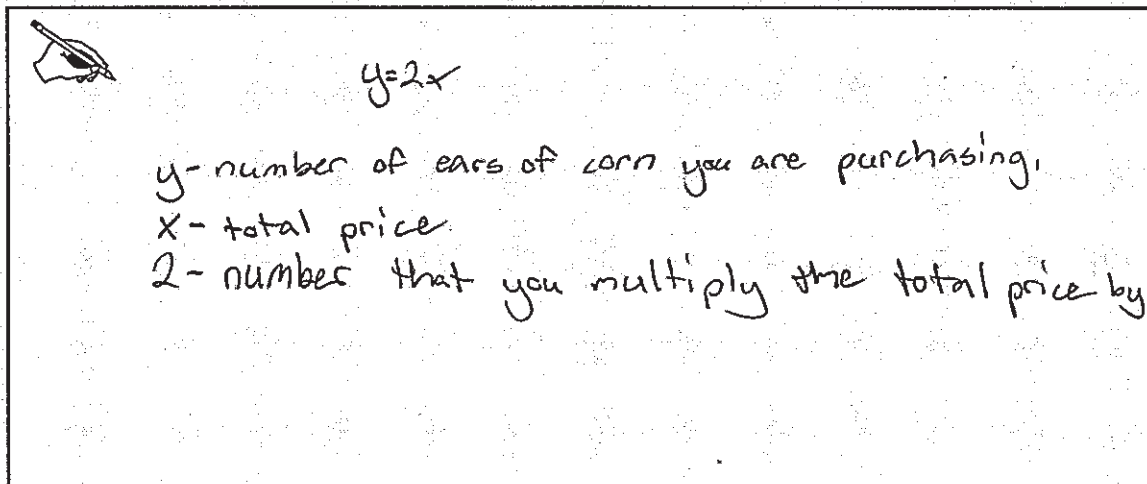 y=2x
y- number of ears of corn you are purchasing.
x- total price.
2- number that you multiply the total price by